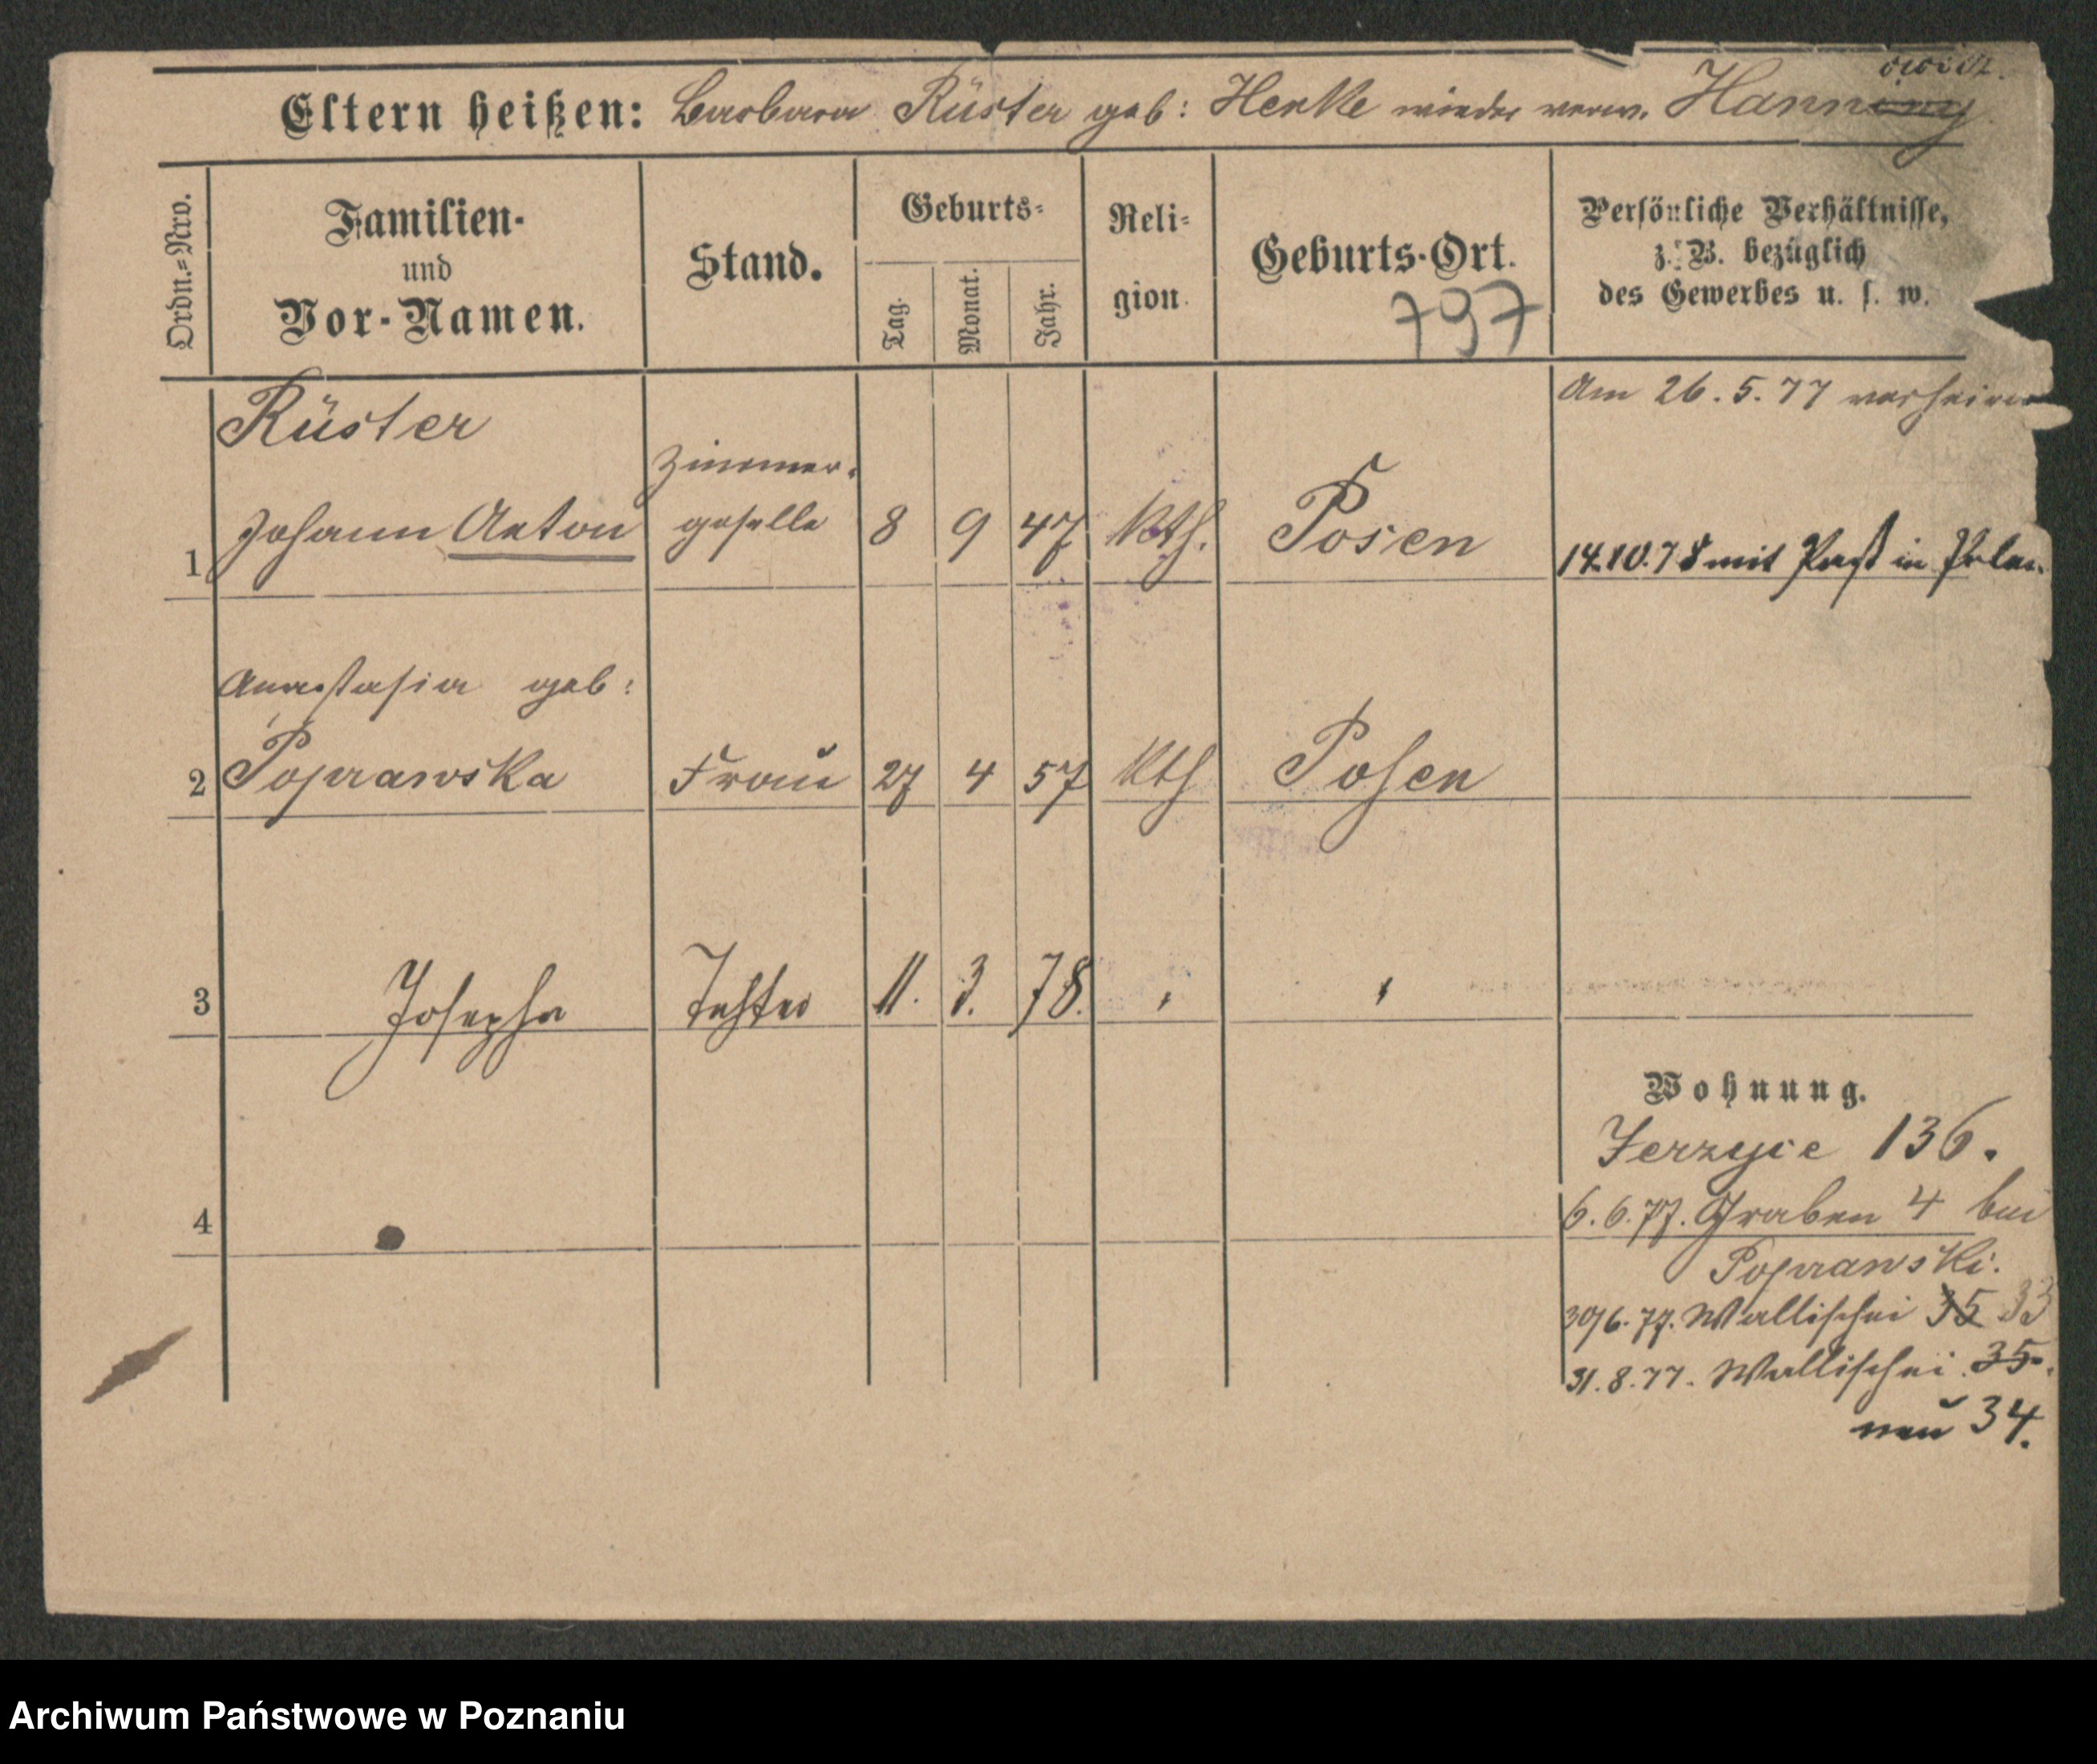 Eltern heißen: Barbara Rüster geb: Henke wieder verw. Hanning
Ordn.=Nro.
Familien-
und
Vor-Namen.
Stand.
Geburts=
Tag.
Monat.
Jahr.
Reli=
gion.
Geburts-Ort.
797
Persönliche Verhältnisse,
z. B. bezüglich
des Gewerbes u. s. w.
Am 26.5.77 verheira
Rüster
Zimmer-
1 Johann Anton geselle 8 9 47 Kth. Posen
14.10.78 mit Paß in Polen.
Anastasia geb:
2 Poprawska Frau 27 4 57 Kth Posen
3 Josepha Tochter 11. 3. 78. " "
Wohnung.
Jerzyce 136.
4
6.6.77. Graben 4 bei
Poprawski.
30/6.77. Wallischei 35 33
31.8.77. Wallischei 35.
neu 34.
Archiwum Państwowe w Poznaniu